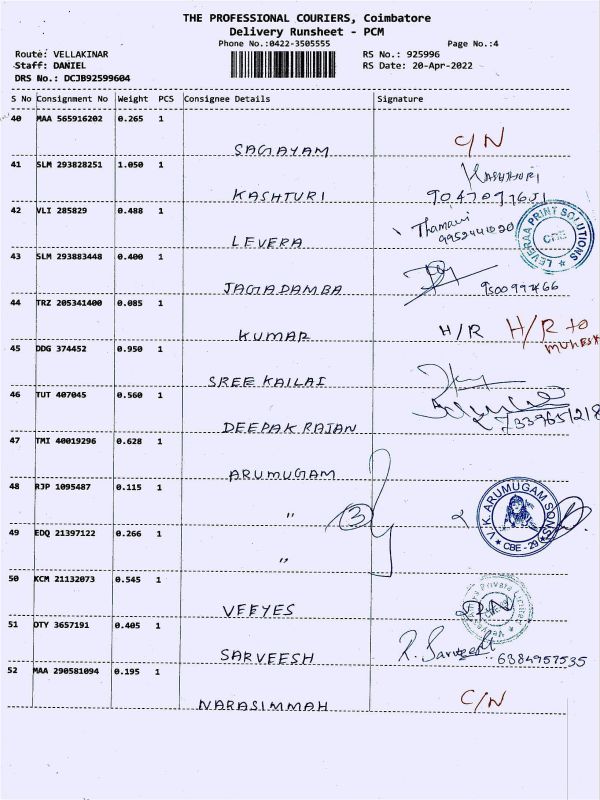 THE PROFESSIONAL COURIERS, Coimbatore
Delivery Runsheet - PCM
Phone No.:0422-3505555
Page No.:4
Route: VELLAKINAR
RS No.: 925996
Staff: DANIEL
RS Date: 20-Apr-2022
DRS No.: DCJB92599604
S No Consignment No Weight PCS Consignee Details Signature
40 MAA 565916202 0.265 1
SAGAYAM C/N
41 SLM 293828251 1.050 1
KASHTURI KASHTHURI
42 VLI 285829 0.488 1
LEVERA Thamarai 9952441020
LEVERAA PRINT SOLUTIONS CBE
43 SLM 293883448 0.400 1
JAGADAMBA
44 TRZ 205341400 0.085 1
KUMAR H/R H/R to
45 DDG 374452 0.950 1
SREE KAILAI
46 TUT 407045 0.560 1
DEEPAK RAJAN
47 TMI 40019296 0.628 1
ARUMUGAM
48 RJP 1095487 0.115 1
" 3
V.K. ARUMUGAM SONS CBE - 29
49 EDQ 21397122 0.266 1
"
50 KCM 21132073 0.545 1
VEEYES
51 OTY 3657191 0.405 1
SARVEESH R. Sarveesh 6384957535
52 MAA 290581094 0.195 1
NARASIMMAH C/N